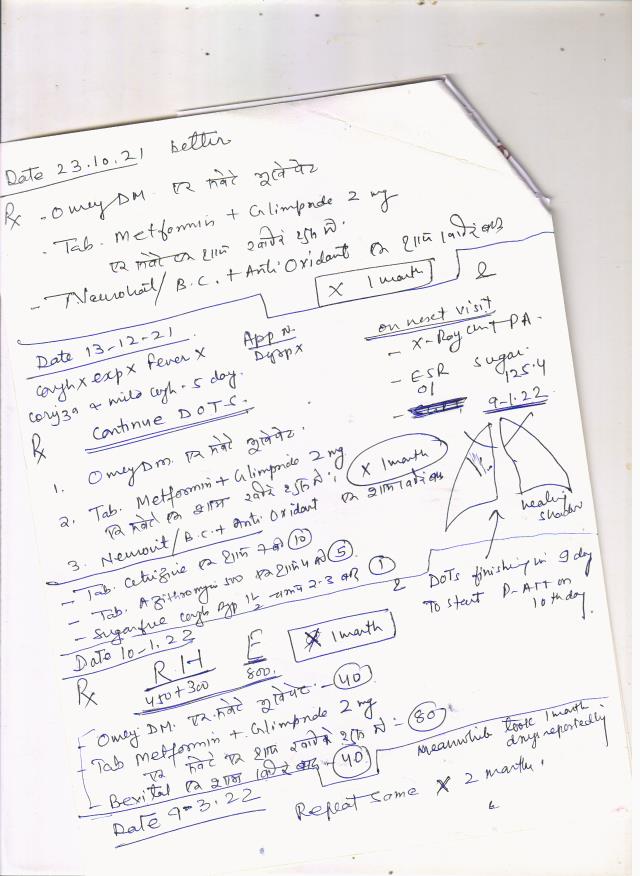 Date 23.10.21 better
Rx - Omey DM. एक सवेरे भूखे पेट
- Tab. Metformin + Glimpride 2 mg
एक सवेरे एक शाम खाने के शुरू में.
- Neurobit / B.C. + Anti Oxidant एक शाम
X 1 month
Date 13-12-21
App N.
Dysp X
cough X exp X Fever X
mild cough . 5 day.
Rx Continue DOTS.
on next visit
- X-Ray chest PA.
- ESR Sugar
01 125.4
9-1.22
1. Omey DM. एक सवेरे भूखे पेट.
2. Tab. Metformin + Glimpride 2 mg
एक सवेरे एक शाम खाने के शुरू में.
X 1 month
3. Neurovit / B.C. + Anti Oxidant एक शाम
healing
shadow
- Tab. Cetrizine एक शाम 7 बजे 10
- Tab. Azithromycin 500 एक शाम 4 बजे 5
- Sugarfree cough Syp 1½ चम्मच 2-3 बार 1
DOTs finishing in 9 day
To start P-ATT on
10th day.
Date 10-1.22
Rx RH E X 1 month
450+300 800.
- Omey DM. एक सवेरे भूखे पेट - 40
- Tab Metformin + Glimpride 2 mg
एक सवेरे एक शाम खाने के शुरू में = 80
- Bexital एक शाम - 40
Meanwhile took 1 month
drugs reportedly
Date 9-3.22 Repeat Same X 2 months.